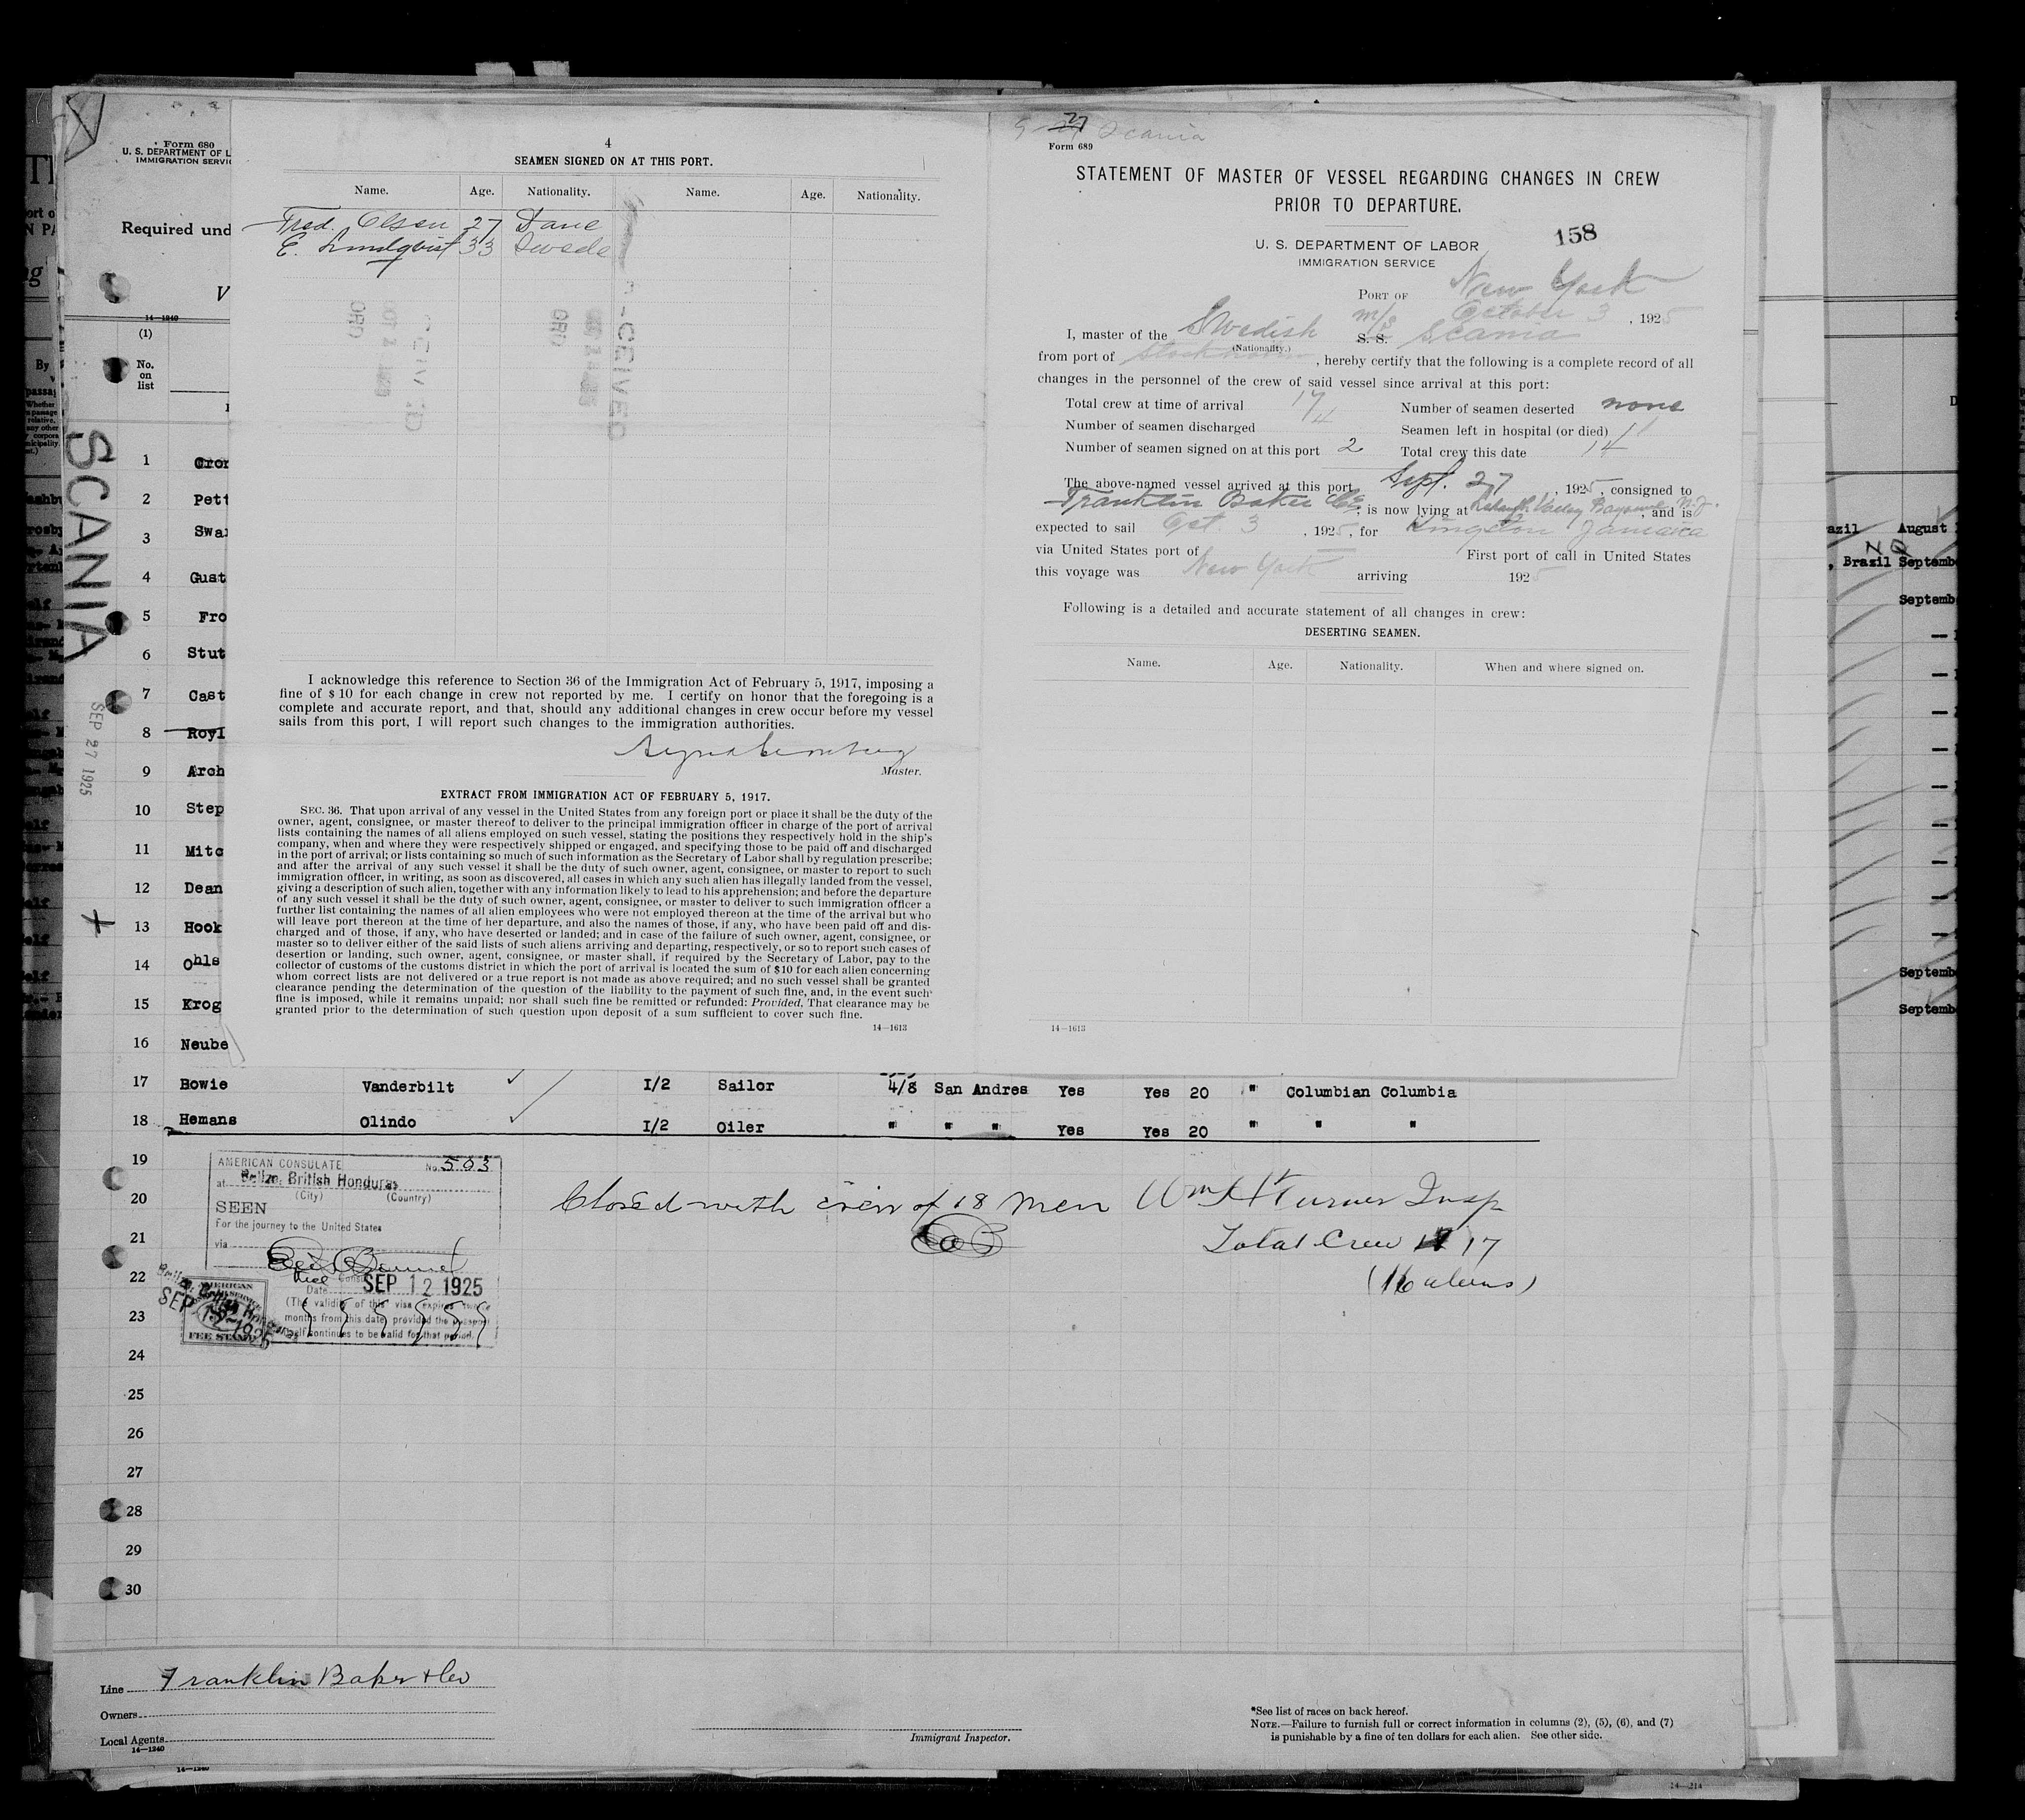 Form 680
U. S. DEPARTMENT OF L
IMMIGRATION SERVIC
Required und
V
14—1240
(1)
No.
on
list
SCANIA
SEP 27 1925
1 Gron
2 Pett
3 Swa
4 Gust
5 Fro
6 Stut
7 Cast
8 Royl
9 Arch
10 Step
11 Mitc
12 Dean
13 Hook
14 Ohls
15 Krog
16 Neube
4
SEAMEN SIGNED ON AT THIS PORT.
Name. Age. Nationality. Name. Age. Nationality.
Fred. Olsen 27 Dane
E. Lindqvist 33 Swede
I acknowledge this reference to Section 36 of the Immigration Act of February 5, 1917, imposing a
fine of $10 for each change in crew not reported by me. I certify on honor that the foregoing is a
complete and accurate report, and that, should any additional changes in crew occur before my vessel
sails from this port, I will report such changes to the immigration authorities.
Master.
EXTRACT FROM IMMIGRATION ACT OF FEBRUARY 5, 1917.
SEC. 36. That upon arrival of any vessel in the United States from any foreign port or place it shall be the duty of the
owner, agent, consignee, or master thereof to deliver to the principal immigration officer in charge of the port of arrival
lists containing the names of all aliens employed on such vessel, stating the positions they respectively hold in the ship's
company, when and where they were respectively shipped or engaged, and specifying those to be paid off and discharged
in the port of arrival; or lists containing so much of such information as the Secretary of Labor shall by regulation prescribe;
and after the arrival of any such vessel it shall be the duty of such owner, agent, consignee, or master to report to such
immigration officer, in writing, as soon as discovered, all cases in which any such alien has illegally landed from the vessel,
giving a description of such alien, together with any information likely to lead to his apprehension; and before the departure
of any such vessel it shall be the duty of such owner, agent, consignee, or master to deliver to such immigration officer a
further list containing the names of all alien employees who were not employed thereon at the time of the arrival but who
will leave port thereon at the time of her departure, and also the names of those, if any, who have been paid off and dis-
charged and of those, if any, who have deserted or landed; and in case of the failure of such owner, agent, consignee, or
master so to deliver either of the said lists of such aliens arriving and departing, respectively, or so to report such cases of
desertion or landing, such owner, agent, consignee, or master shall, if required by the Secretary of Labor, pay to the
collector of customs of the customs district in which the port of arrival is located the sum of $10 for each alien concerning
whom correct lists are not delivered or a true report is not made as above required; and no such vessel shall be granted
clearance pending the determination of the question of the liability to the payment of such fine, and, in the event such
fine is imposed, while it remains unpaid; nor shall such fine be remitted or refunded: Provided, That clearance may be
granted prior to the determination of such question upon deposit of a sum sufficient to cover such fine.
14—1613
27 Scania
Form 689
STATEMENT OF MASTER OF VESSEL REGARDING CHANGES IN CREW
PRIOR TO DEPARTURE.
U. S. DEPARTMENT OF LABOR
IMMIGRATION SERVICE
158
PORT OF New York
October 3, 1925
I, master of the Swedish m/s S. S. Scania
(Nationality.)
from port of Stockholm, hereby certify that the following is a complete record of all
changes in the personnel of the crew of said vessel since arrival at this port:
Total crew at time of arrival 17 Number of seamen deserted none
Number of seamen discharged 4 Seamen left in hospital (or died) 1
Number of seamen signed on at this port 2 Total crew this date 14
The above-named vessel arrived at this port Sept. 27, 1925, consigned to
Franklin Baker Co, is now lying at Lehigh Valley Bayonne N.J., and is
expected to sail Oct. 3, 1925, for Kingston Jamaica
via United States port of First port of call in United States
this voyage was New York arriving 1925
Following is a detailed and accurate statement of all changes in crew:
DESERTING SEAMEN.
Name. Age. Nationality. When and where signed on.
14—1613
azil August
, Brazil Septemb
Septemb
Septemb
Septemb
17 Bowie Vanderbilt 1/2 Sailor 4/8 San Andres Yes Yes 20 " Columbian Columbia
18 Hemans Olindo 1/2 Oiler " " " Yes Yes 20 " " "
19
20
21
22
23
24
25
26
27
28
29
30
AMERICAN CONSULATE No. 503
at Belize, British Honduras
(City) (Country)
SEEN
For the journey to the United States
via
Vice Consul
Date SEP 12 1925
(The validity of this visa expires twelve
months from this date provided the passport
itself continues to be valid for that period.
AMERICAN
FEE STAMP
Closed with crew of 18 men Wm H Turner Insp
Total Crew 17
(16 aliens)
Line Franklin Baker & Co
Owners
Local Agents
14—1240
Immigrant Inspector.
*See list of races on back hereof.
NOTE.—Failure to furnish full or correct information in columns (2), (5), (6), and (7)
is punishable by a fine of ten dollars for each alien. See other side.
14—1240
14—214